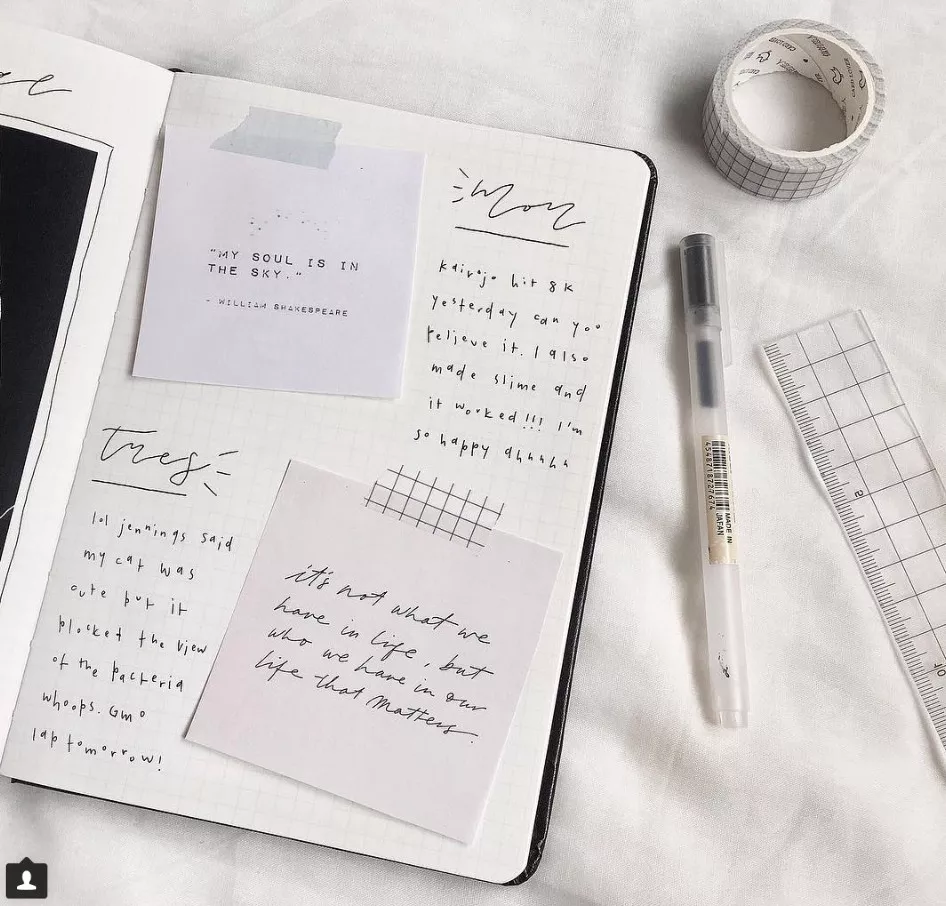 "MY SOUL IS IN
THE SKY."
- WILLIAM SHAKESPEARE
Mon
kairojo hit 8K
yesterday can you
believe it. I also
made slime and
it worked!!! I'm
so happy ahhhhh
tues
lol jennings said
my cat was
cute but it
blocked the view
of the bacteria
whoops. GMO
lab tomorrow!
it's not what we
have in life, but
who we have in our
life that matters.
4548718727674
MADE IN
JAPAN
2
10